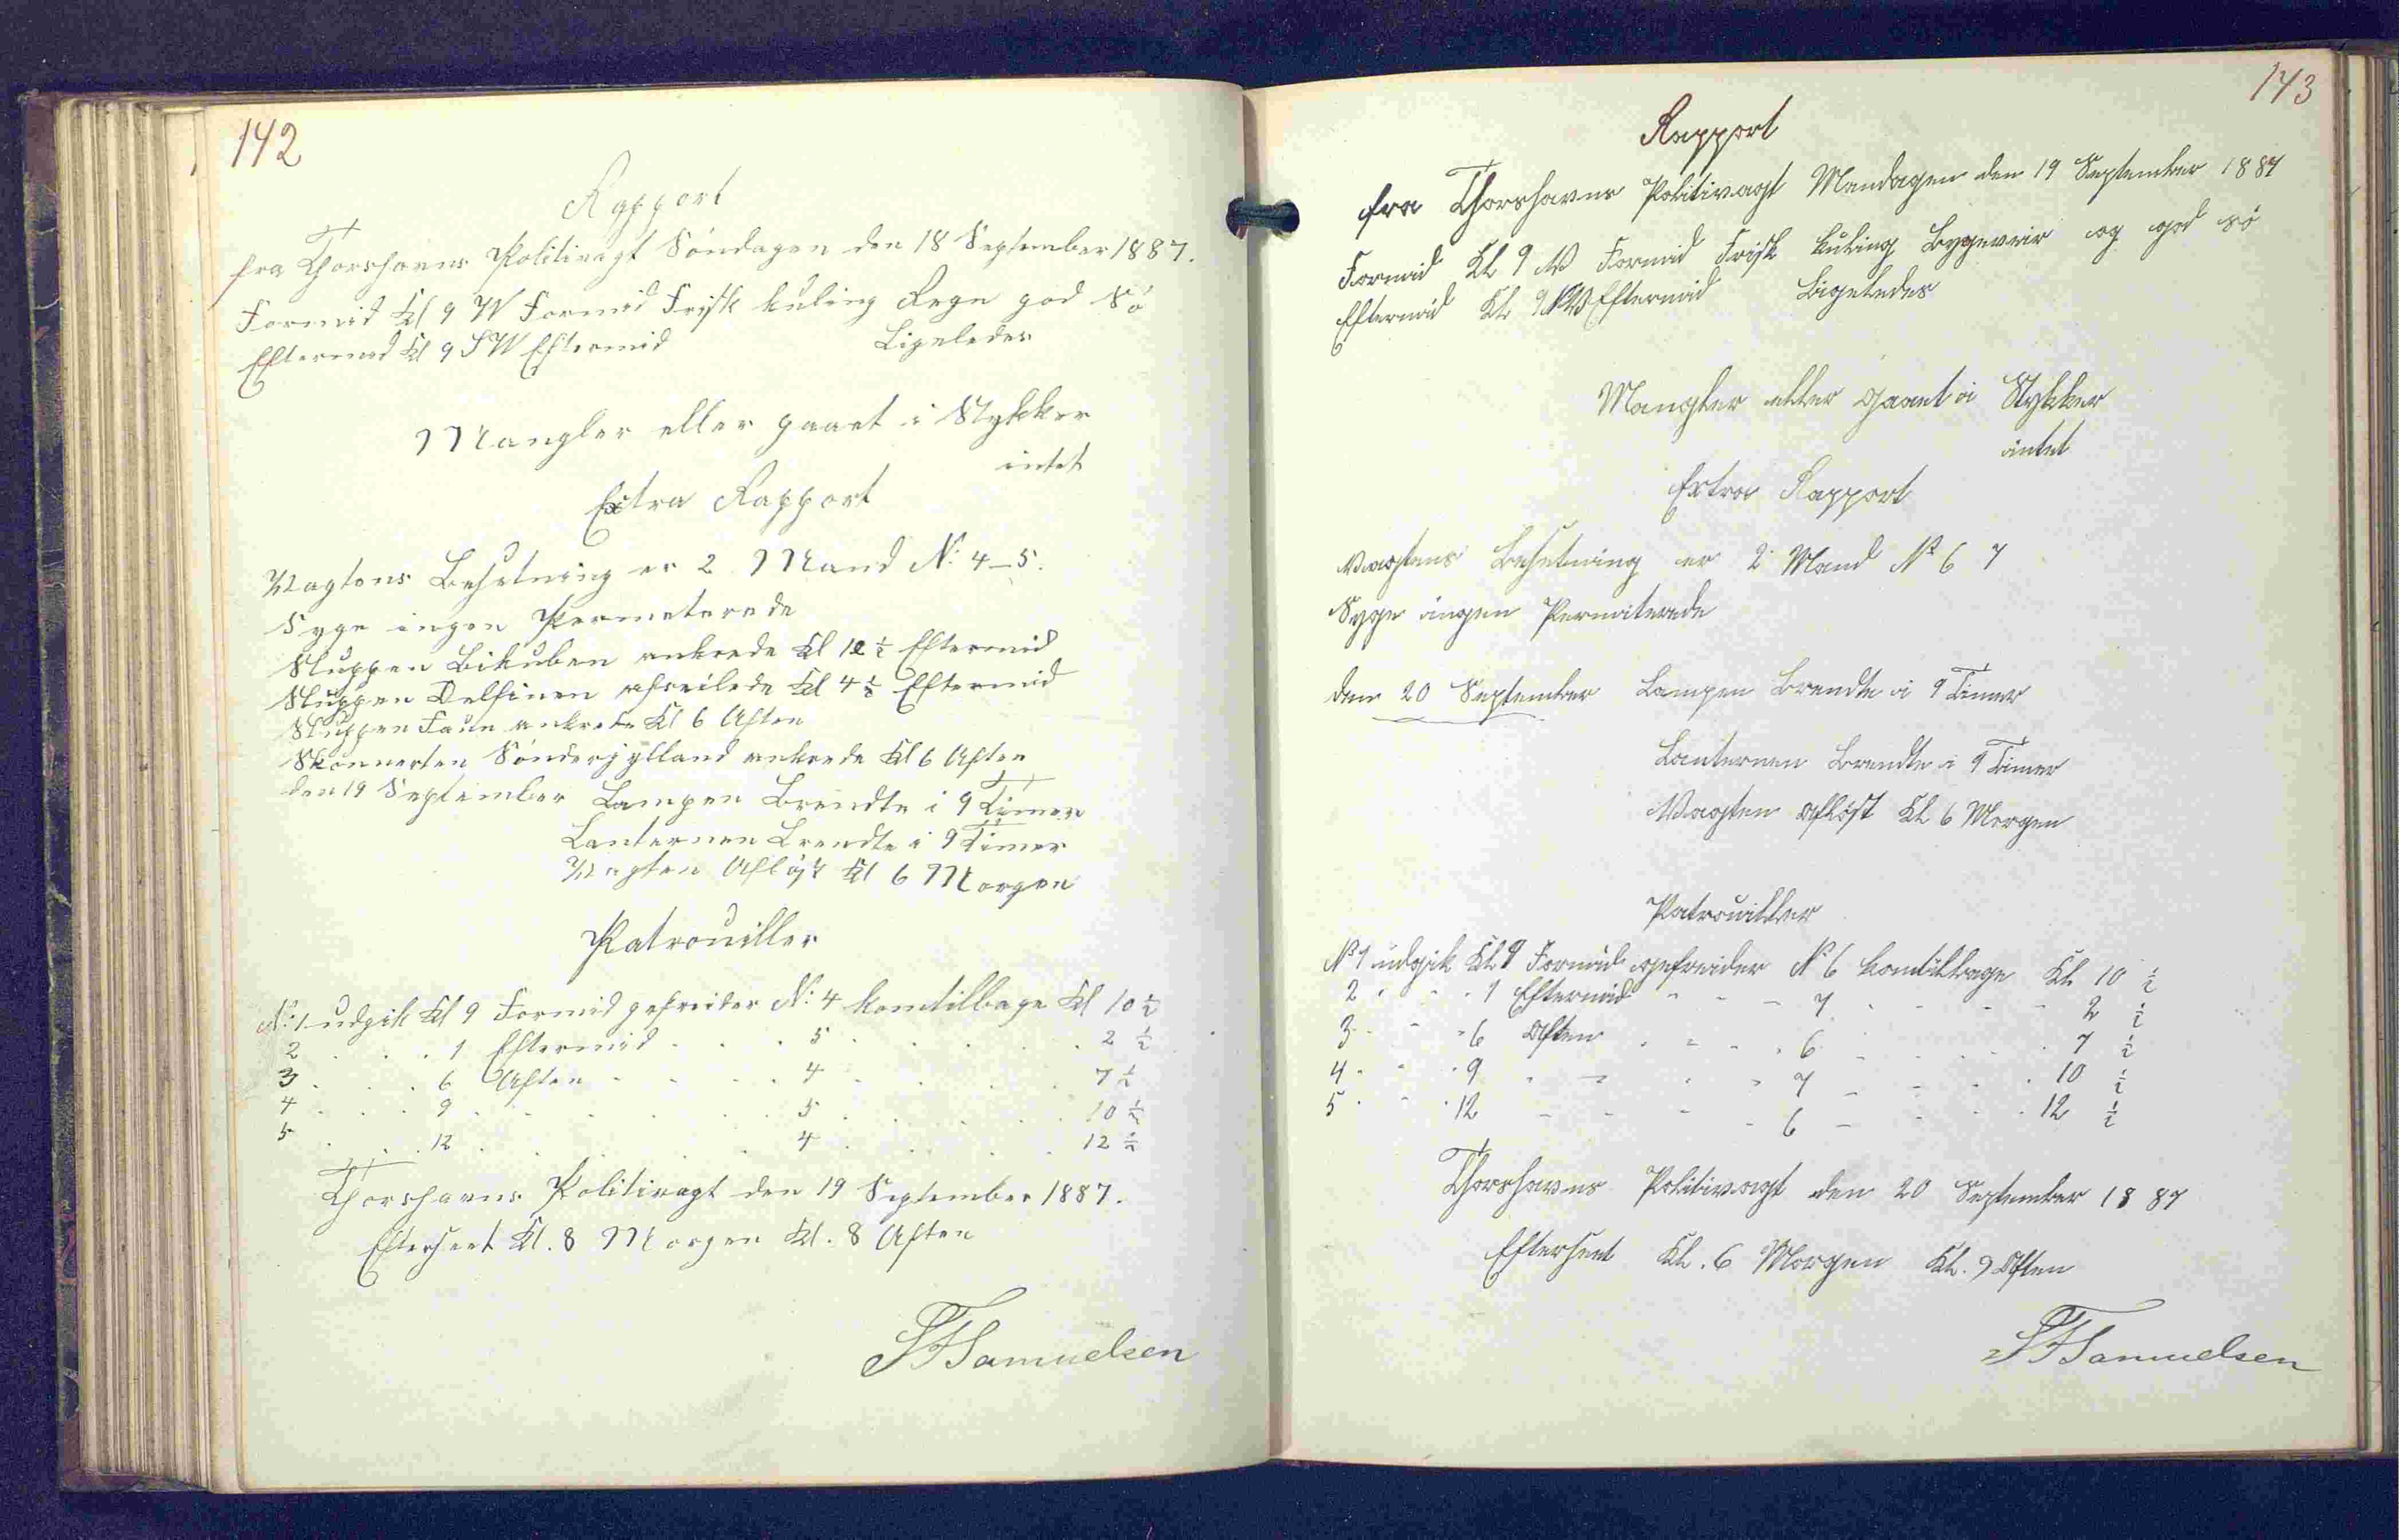 142
Rapport
fra Thorshavns Politivagt Söndagen den 18 September 1887.
Formid Kl 9 W Formid Frisk kuling Regn god Sö
Eftermid Kl 9 SW Eftermid Ligeledes
Mangler eller gaaet i Stykker
intet
Extra Rapport
Vagtens Besetning er 2 Mand N: 4-5.
Syge ingen Permeterede
Sluppen Bikuben ankrede Kl 12 ½ Eftermid
Sluppen Delfinen afseilede Kl 4 ½ Eftermid
Sluppen Faun ankrede Kl 6 Aften
Skonnerten Sönderjylland ankrede Kl 6 Aften
den 19 September Lampen Brendte i 9 Timer
Lanternen Brendte i 9 Timer
Vagten Aflöst Kl 6 Morgen
Patrouiller
N: 1 udgik Kl 9 Formid gefreider N: 4 komtilbage Kl 10 ½
2 . . . 1 Eftermid . . . 5 . . . . . 2 ½
3 . . . 6 Aften . . . . 4 . . . . . 7 ½
4 . . . 9 . . . . . . 5 . . . . . 10 ½
5 . . . 12 . . . . . . 4 . . . . . 12 ½
Thorshavns Politivagt den 19 September 1887.
Efterseet Kl. 8 Morgen Kl. 8 Aften
Samuelsen
143
Rapport
fra Thorshavns Politivagt Mandagen den 19 September 1887
Formid Kl 9 W Formid Frisk kuling Bygeveir og god sö
Eftermid Kl 9 NW Eftermid Ligeledes
Mangler eller gaaet i Stykker
intet
Extra Rapport
Vagtens Besetning er 2 Mand N 6 7
Syge ingen Permiterede
den 20 September Lampen Brendte i 9 Timer
Lanternen Brendte i 9 Timer
Vagten aflöst Kl 6 Morgen
Patrouiller
N 1 udgik Kl 9 Formid gefreider N 6 komtilbage Kl 10 ½
2 " " " 1 Eftermid - - - 7 - - - - 2 ½
3 - - - 6 Aften - - - - 6 - - - - 7 ½
4 - - - 9 - - - - 7 - - - - 10 ½
5 - - - 12 - - - - 6 - - - - 12 ½
Thorshavns Politivagt den 20 September 1887
Efterseet Kl. 6 Morgen Kl. 9 Aften
Samuelsen